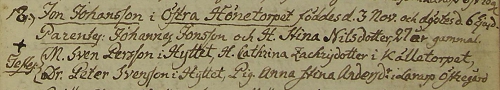 18. Jon Johansson i Östra Hönetorpet föddes d. 3 Nov. och döptes d. 6
Parentes: Johannes Jonsson och H. Stina Nilsdotter, 27 år gammal.
Testes: M. Sven Persson i Hyttet, H. Cathrina Zachrisdotter i Källatorpet,
Dr. Peter Svensson i Hyttet, Pig. Anna Stina Andersd: i Östregård